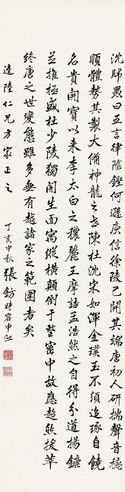 沈歸愚曰五言律陰鏗何遜庾信徐陵已開其端唐初人研揣聲音穩
順體勢其製大備神龍之世陳杜沈宋如渾金璞玉不須追琢自饒
名貴開寶以來李太白之穠麗王摩詰孟浩然之自得分道揚鑣
並推極盛杜少陵獨開生面寓縱橫顛倒于整密中故應超然拔萃
終唐之世變態雖多無有越諸家之範圍者矣
達陸仁兄方家正之
丁亥中秋張鈁時客申江